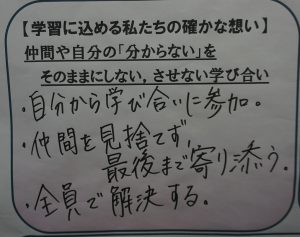 【学習に込める私たちの確かな想い】
仲間や自分の「分からない」を
そのままにしない，させない学び合い
・自分から学び合いに参加。
・仲間を見捨てず，
最後まで寄り添う。
・全員で解決する。